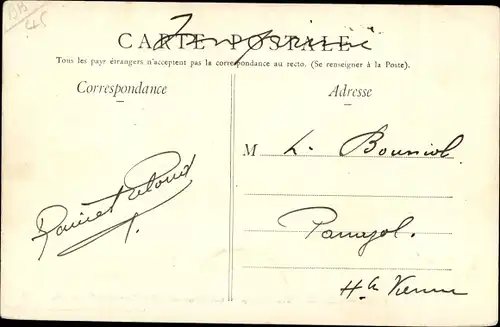 CARTE POSTALE
Tous les pays étrangers n'acceptent pas la correspondance au recto. (Se renseigner à la Poste).
Correspondance
Adresse
M L. Bouniol
Panazol.
Hte Vienne